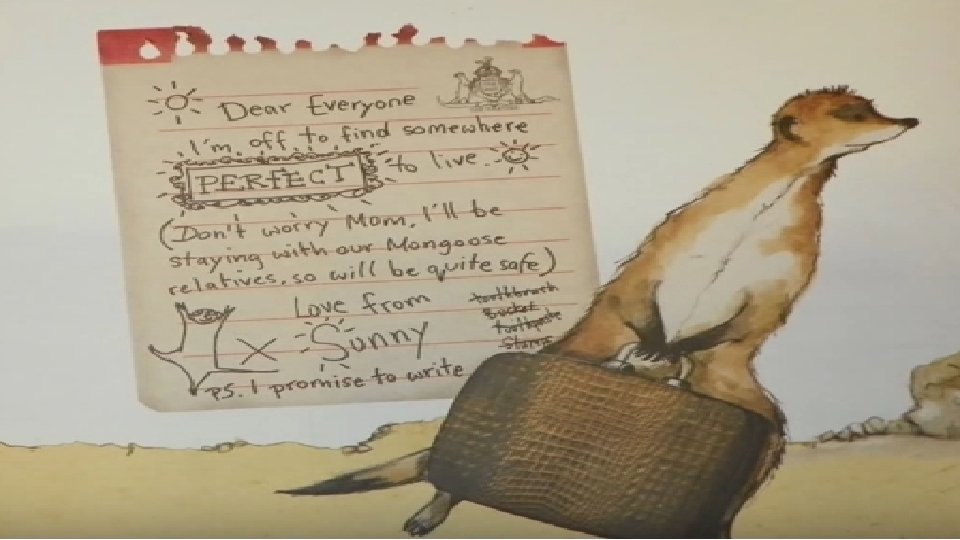 Dear Everyone
I'm off to find somewhere
PERFECT to live.
(Don't worry Mom, I'll be
staying with our Mongoose
relatives, so will be quite safe)
Love from
X Sunny
toothbrush
Bucket
toothpaste
Stamps
PS. I promise to write